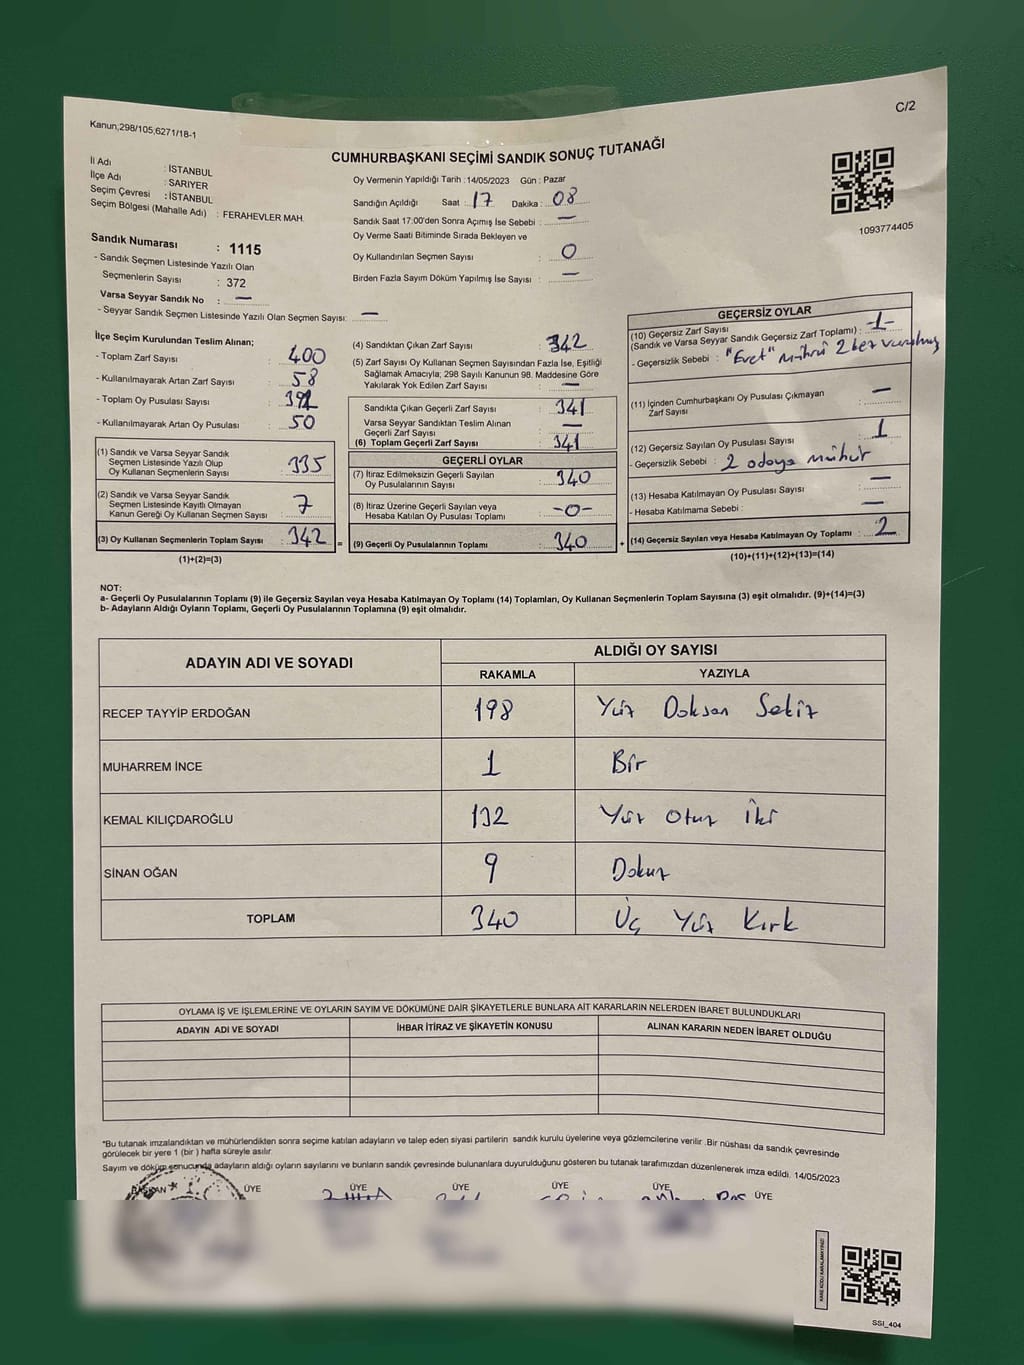 C/2
Kanun,298/105,6271/18-1
CUMHURBAŞKANI SEÇİMİ SANDIK SONUÇ TUTANAĞI
İl Adı : İSTANBUL
İlçe Adı : SARIYER
Seçim Çevresi : İSTANBUL
Seçim Bölgesi (Mahalle Adı) : FERAHEVLER MAH.
Sandık Numarası : 1115
- Sandık Seçmen Listesinde Yazılı Olan
Seçmenlerin Sayısı : 372
Varsa Seyyar Sandık No : —
- Seyyar Sandık Seçmen Listesinde Yazılı Olan Seçmen Sayısı: —
Oy Vermenin Yapıldığı Tarih :14/05/2023 Gün : Pazar
Sandığın Açıldığı Saat : 17 Dakika : 08
Sandık Saat 17:00'den Sonra Açımış İse Sebebi : —
Oy Verme Saati Bitiminde Sırada Bekleyen ve
Oy Kullandırılan Seçmen Sayısı : 0
Birden Fazla Sayım Döküm Yapılmış İse Sayısı : —
1093774405
İlçe Seçim Kurulundan Teslim Alınan;
- Toplam Zarf Sayısı : 400
- Kullanılmayarak Artan Zarf Sayısı : 58
- Toplam Oy Pusulası Sayısı : 392
- Kullanılmayarak Artan Oy Pusulası : 50
(1) Sandık ve Varsa Seyyar Sandık
Seçmen Listesinde Yazılı Olup
Oy Kullanan Seçmenlerin Sayısı : 335
(2) Sandık ve Varsa Seyyar Sandık
Seçmen Listesinde Kayıtlı Olmayan
Kanun Gereği Oy Kullanan Seçmen Sayısı : 7
(3) Oy Kullanan Seçmenlerin Toplam Sayısı : 342
(1)+(2)=(3)
(4) Sandıktan Çıkan Zarf Sayısı : 342
(5) Zarf Sayısı Oy Kullanan Seçmen Sayısından Fazla İse, Eşitliği
Sağlamak Amacıyla; 298 Sayılı Kanunun 98. Maddesine Göre
Yakılarak Yok Edilen Zarf Sayısı : —
Sandıkta Çıkan Geçerli Zarf Sayısı : 341
Varsa Seyyar Sandıktan Teslim Alınan
Geçerli Zarf Sayısı : —
(6) Toplam Geçerli Zarf Sayısı : 341
GEÇERLİ OYLAR
(7) İtiraz Edilmeksizin Geçerli Sayılan
Oy Pusulalarının Sayısı : 340
(8) İtiraz Üzerine Geçerli Sayılan veya
Hesaba Katılan Oy Pusulası Toplamı : -0-
= (9) Geçerli Oy Pusulalarının Toplamı : 340 +
GEÇERSİZ OYLAR
(10) Geçersiz Zarf Sayısı
(Sandık ve Varsa Seyyar Sandık Geçersiz Zarf Toplamı) : -1-
- Geçersizlik Sebebi : "Evet" mührü 2 kez vurulmuş
(11) İçinden Cumhurbaşkanı Oy Pusulası Çıkmayan
Zarf Sayısı : —
(12) Geçersiz Sayılan Oy Pusulası Sayısı : 1
- Geçersizlik Sebebi : 2 adaya mühür
(13) Hesaba Katılmayan Oy Pusulası Sayısı : —
- Hesaba Katılmama Sebebi : —
(14) Geçersiz Sayılan veya Hesaba Katılmayan Oy Toplamı : 2
(10)+(11)+(12)+(13)=(14)
NOT:
a- Geçerli Oy Pusulalarının Toplamı (9) ile Geçersiz Sayılan veya Hesaba Katılmayan Oy Toplamı (14) Toplamları, Oy Kullanan Seçmenlerin Toplam Sayısına (3) eşit olmalıdır. (9)+(14)=(3)
b- Adayların Aldığı Oyların Toplamı, Geçerli Oy Pusulalarının Toplamına (9) eşit olmalıdır.
ADAYIN ADI VE SOYADI ALDIĞI OY SAYISI
RAKAMLA YAZIYLA
RECEP TAYYİP ERDOĞAN 198 Yüz Doksan Sekiz
MUHARREM İNCE 1 Bir
KEMAL KILIÇDAROĞLU 132 Yüz Otuz İki
SİNAN OĞAN 9 Dokuz
TOPLAM 340 Üç Yüz Kırk
OYLAMA İŞ VE İŞLEMLERİNE VE OYLARIN SAYIM VE DÖKÜMÜNE DAİR ŞİKAYETLERLE BUNLARA AİT KARARLARIN NELERDEN İBARET BULUNDUKLARI
ADAYIN ADI VE SOYADI İHBAR İTİRAZ VE ŞİKAYETİN KONUSU ALINAN KARARIN NEDEN İBARET OLDUĞU
*Bu tutanak imzalandıktan ve mühürlendikten sonra seçime katılan adayların ve talep eden siyasi partilerin sandık kurulu üyelerine veya gözlemcilerine verilir .Bir nüshası da sandık çevresinde
görülecek bir yere 1 (bir ) hafta süreyle asılır.
Sayım ve döküm sonucunda adayların aldığı oyların sayılarını ve bunların sandık çevresinde bulunanlara duyurulduğunu gösteren bu tutanak tarafımızdan düzenlenerek imza edildi. 14/05/2023
BAŞKAN ÜYE ÜYE ÜYE ÜYE ÜYE ÜYE
KARE KODU KARALAMAYINIZ!
SSI_404